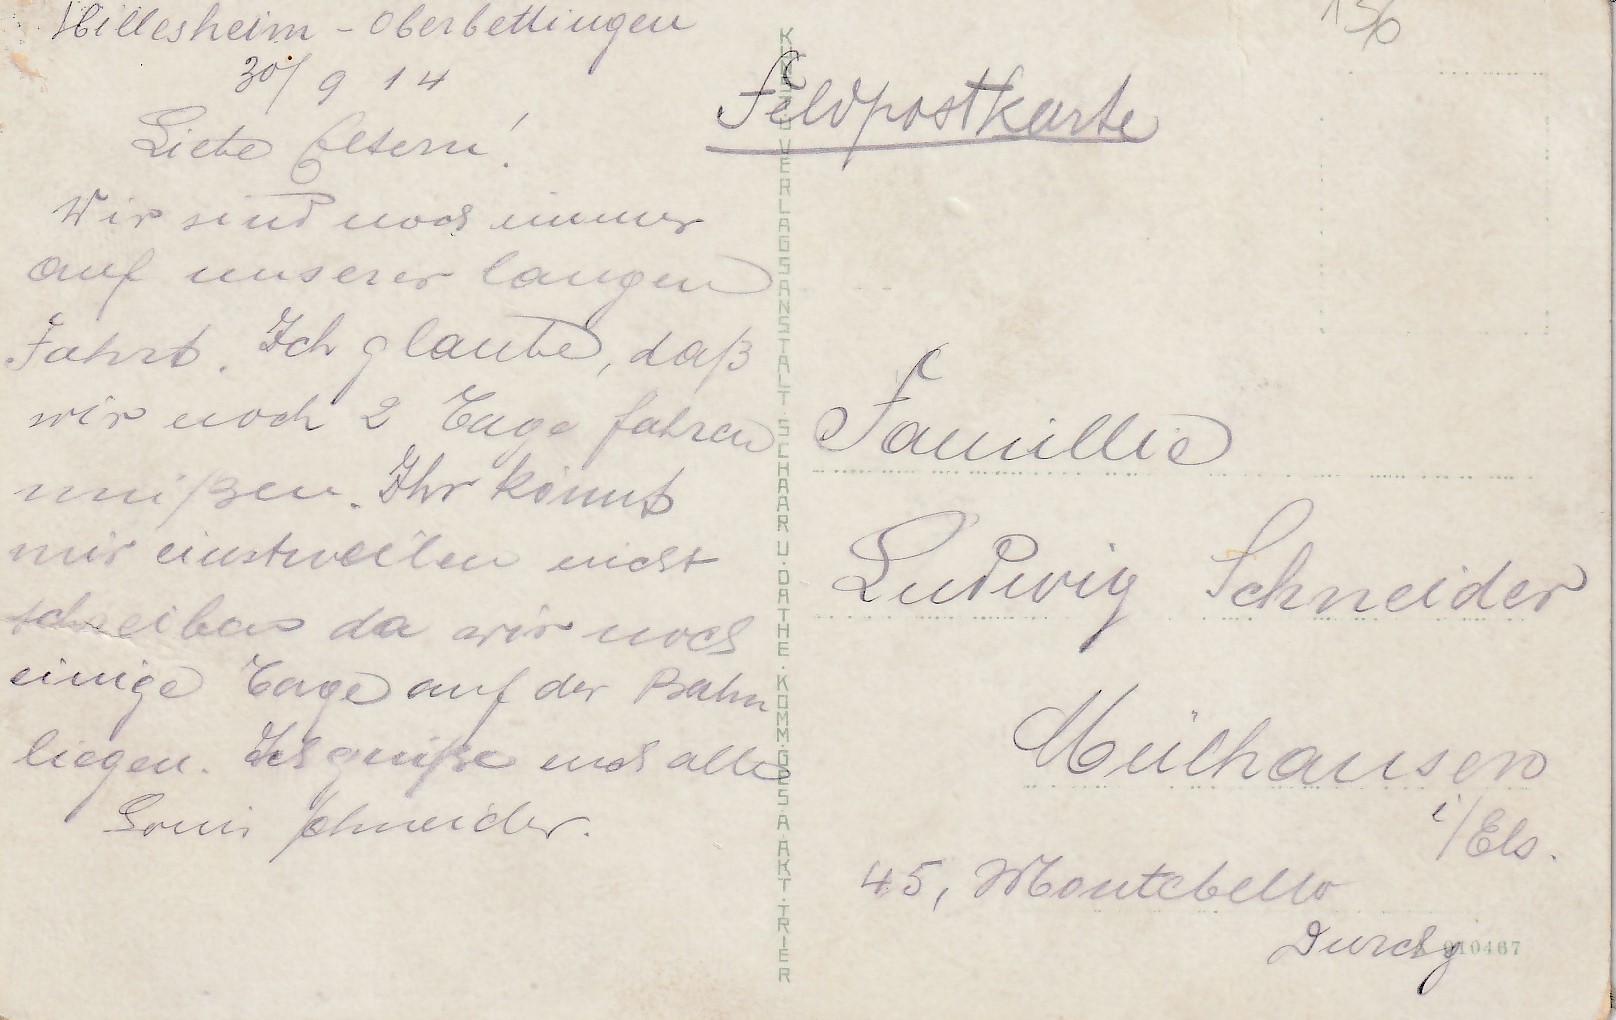 Hillesheim - Oberbettingen
30/9 14
Liebe Eltern!
Wir sind noch immer
auf unserer langen
Fahrt. Ich glaube, daß
wir noch 2 Tage fahren
müßen. Ihr könnt
mir einstweilen nicht
schreiben da wir noch
einige Tage auf der Bahn
liegen. Ich grüße euch alle
Louis Schneider.
KUNST U. VERLAGSANSTALT SCHAAR U. DATHE. KOMM. GES. A. AKT. TRIER
156
Feldpostkarte
Familie
Ludwig Schneider
Mülhausen
i/Els.
45, Montebello
Durchg
910467